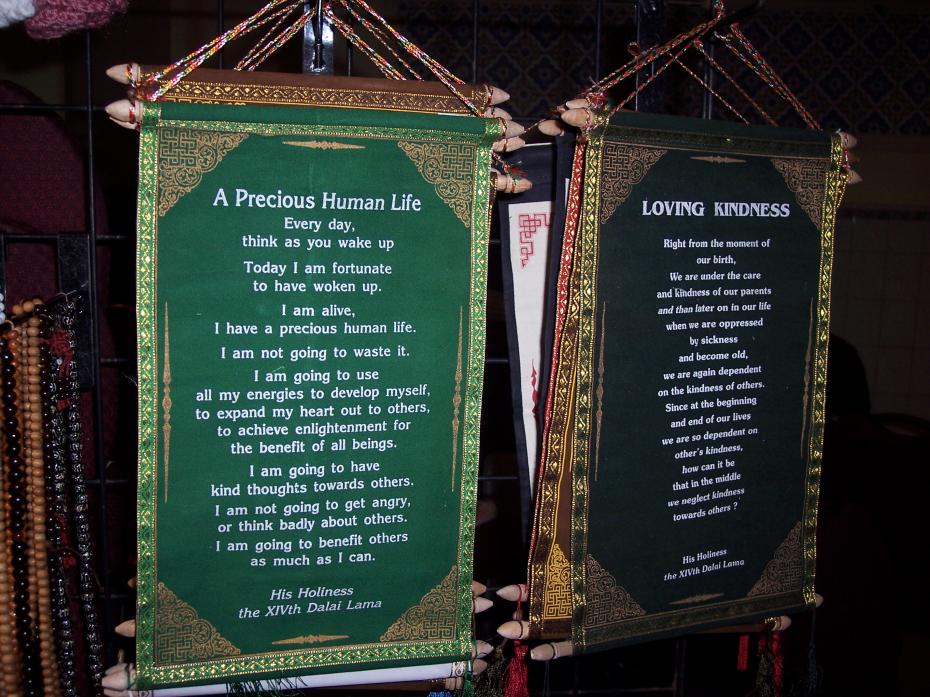 A Precious Human Life
Every day,
think as you wake up
Today I am fortunate
to have woken up.
I am alive,
I have a precious human life.
I am not going to waste it.
I am going to use
all my energies to develop myself,
to expand my heart out to others,
to achieve enlightenment for
the benefit of all beings.
I am going to have
kind thoughts towards others.
I am not going to get angry,
or think badly about others.
I am going to benefit others
as much as I can.
His Holiness
the XIVth Dalai Lama
LOVING KINDNESS
Right from the moment of
our birth,
We are under the care
and kindness of our parents
and than later on in our life
when we are oppressed
by sickness
and become old,
we are again dependent
on the kindness of others.
Since at the beginning
and end of our lives
we are so dependent on
other's kindness,
how can it be
that in the middle
we neglect kindness
towards others ?
His Holiness
the XIVth Dalai Lama